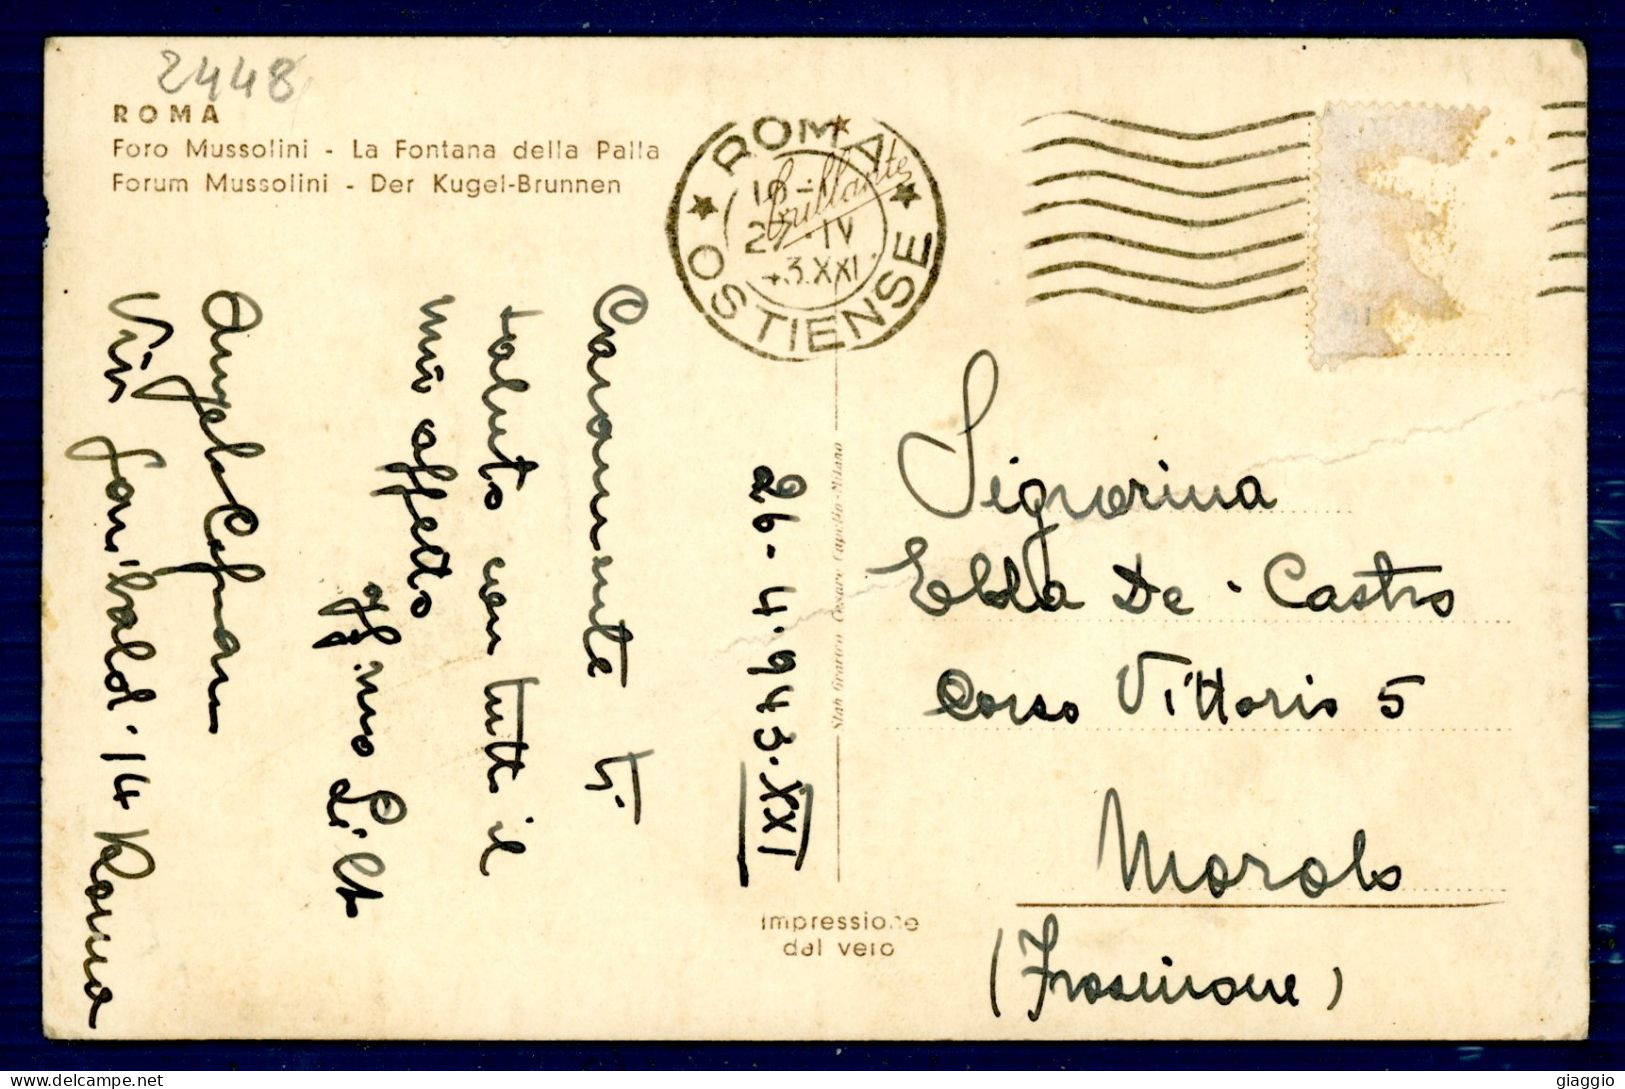 2448
ROMA
Foro Mussolini - La Fontana della Palla
Forum Mussolini - Der Kugel-Brunnen
ROMA
OSTIENSE
IV
3.XXI
brillante
26-4-943.XXI
Caramente ti
saluto con tutto il
mio affetto
Via Garibaldi 14 Roma
Stab Grafico Cesare Capello-Milano
Impressione
dal vero
Signorina
Elda De-Castro
Corso Vittorio 5
Morolo
(Frosinone)
giaggio
delcampe.net